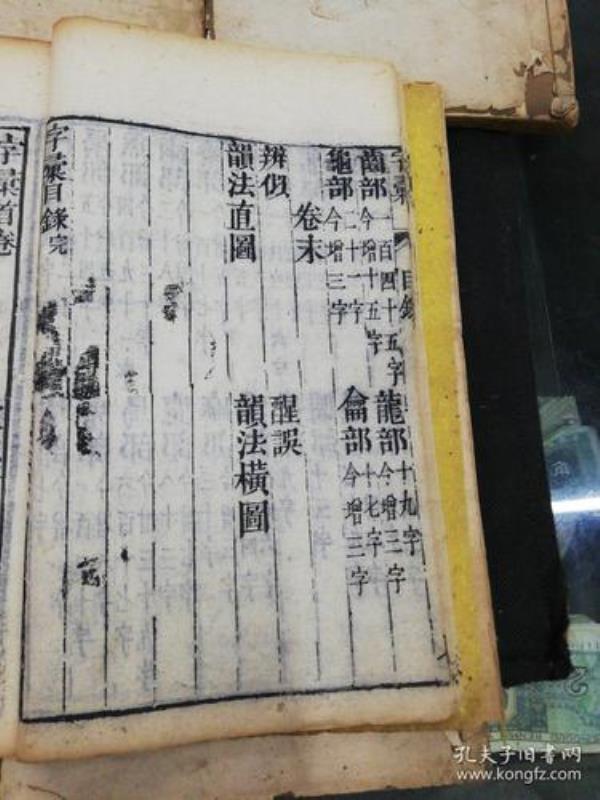 字彙 目錄
齒部一百四十五字今增十五字
龍部十九字今增三字
龜部二十一字今增三字
龠部十七字今增三字
卷末
辨似
醒誤
韻法直圖
韻法橫圖
字彙目錄完
字彙首卷
孔夫子旧书网
www.kongfz.com